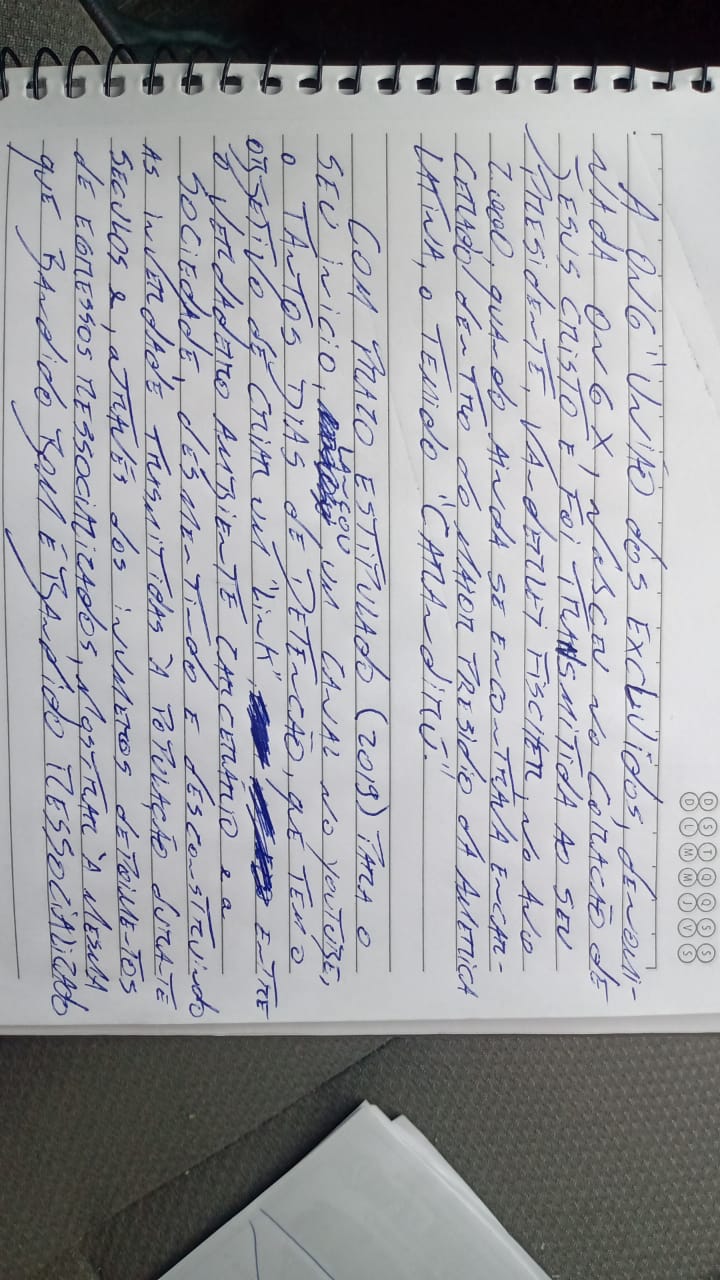 D S T Q Q S S
D L M M J V S
A ONG "UNIÃO dos EXCLUídos, dENOMI-
NADA ONG X, NASCEU NO CORAÇÃO dE
JESUS CRISTO E FOI TRANSMITIDA AO SEU
PRESIdENTE, VANdERLEI FISCHER, NO ANO
2.000, QUANdO AINdA SE ENCONTRAVA ENCAR-
CERADO dENTRO do MAIOR PRESÍdIO dA AMERICA
LATINA, O TEMIdO "CARANdIRÚ."
COM PRAZO ESTIPULAdO (2019) PARA O
LANÇOU
SEU INICIO, UM CANAL NO YOUTUBE,
O TANTOS DIAS dE DETENÇÃO, QUE TEM O
OBJETIVO dE CRIAR UM "LINK", ENTRE
O VERDADEIRO AMBIENTE CARCERÁRIO e a
SOCIEDADE, dESMENTINdO E dESCONSTRUINdO
AS INVERDADE TRASMITIDAS À POPULAÇÃO dURANTE
SECULOS e, ATRAVÉS dOS INUMEROS dEPOIMENTOS
dE EGRESSOS RESSOCIALIZAdOS, MOSTRAR À MESMA
QUE BANdIdO BOM É BANdIDO RESSOCIALIZADO